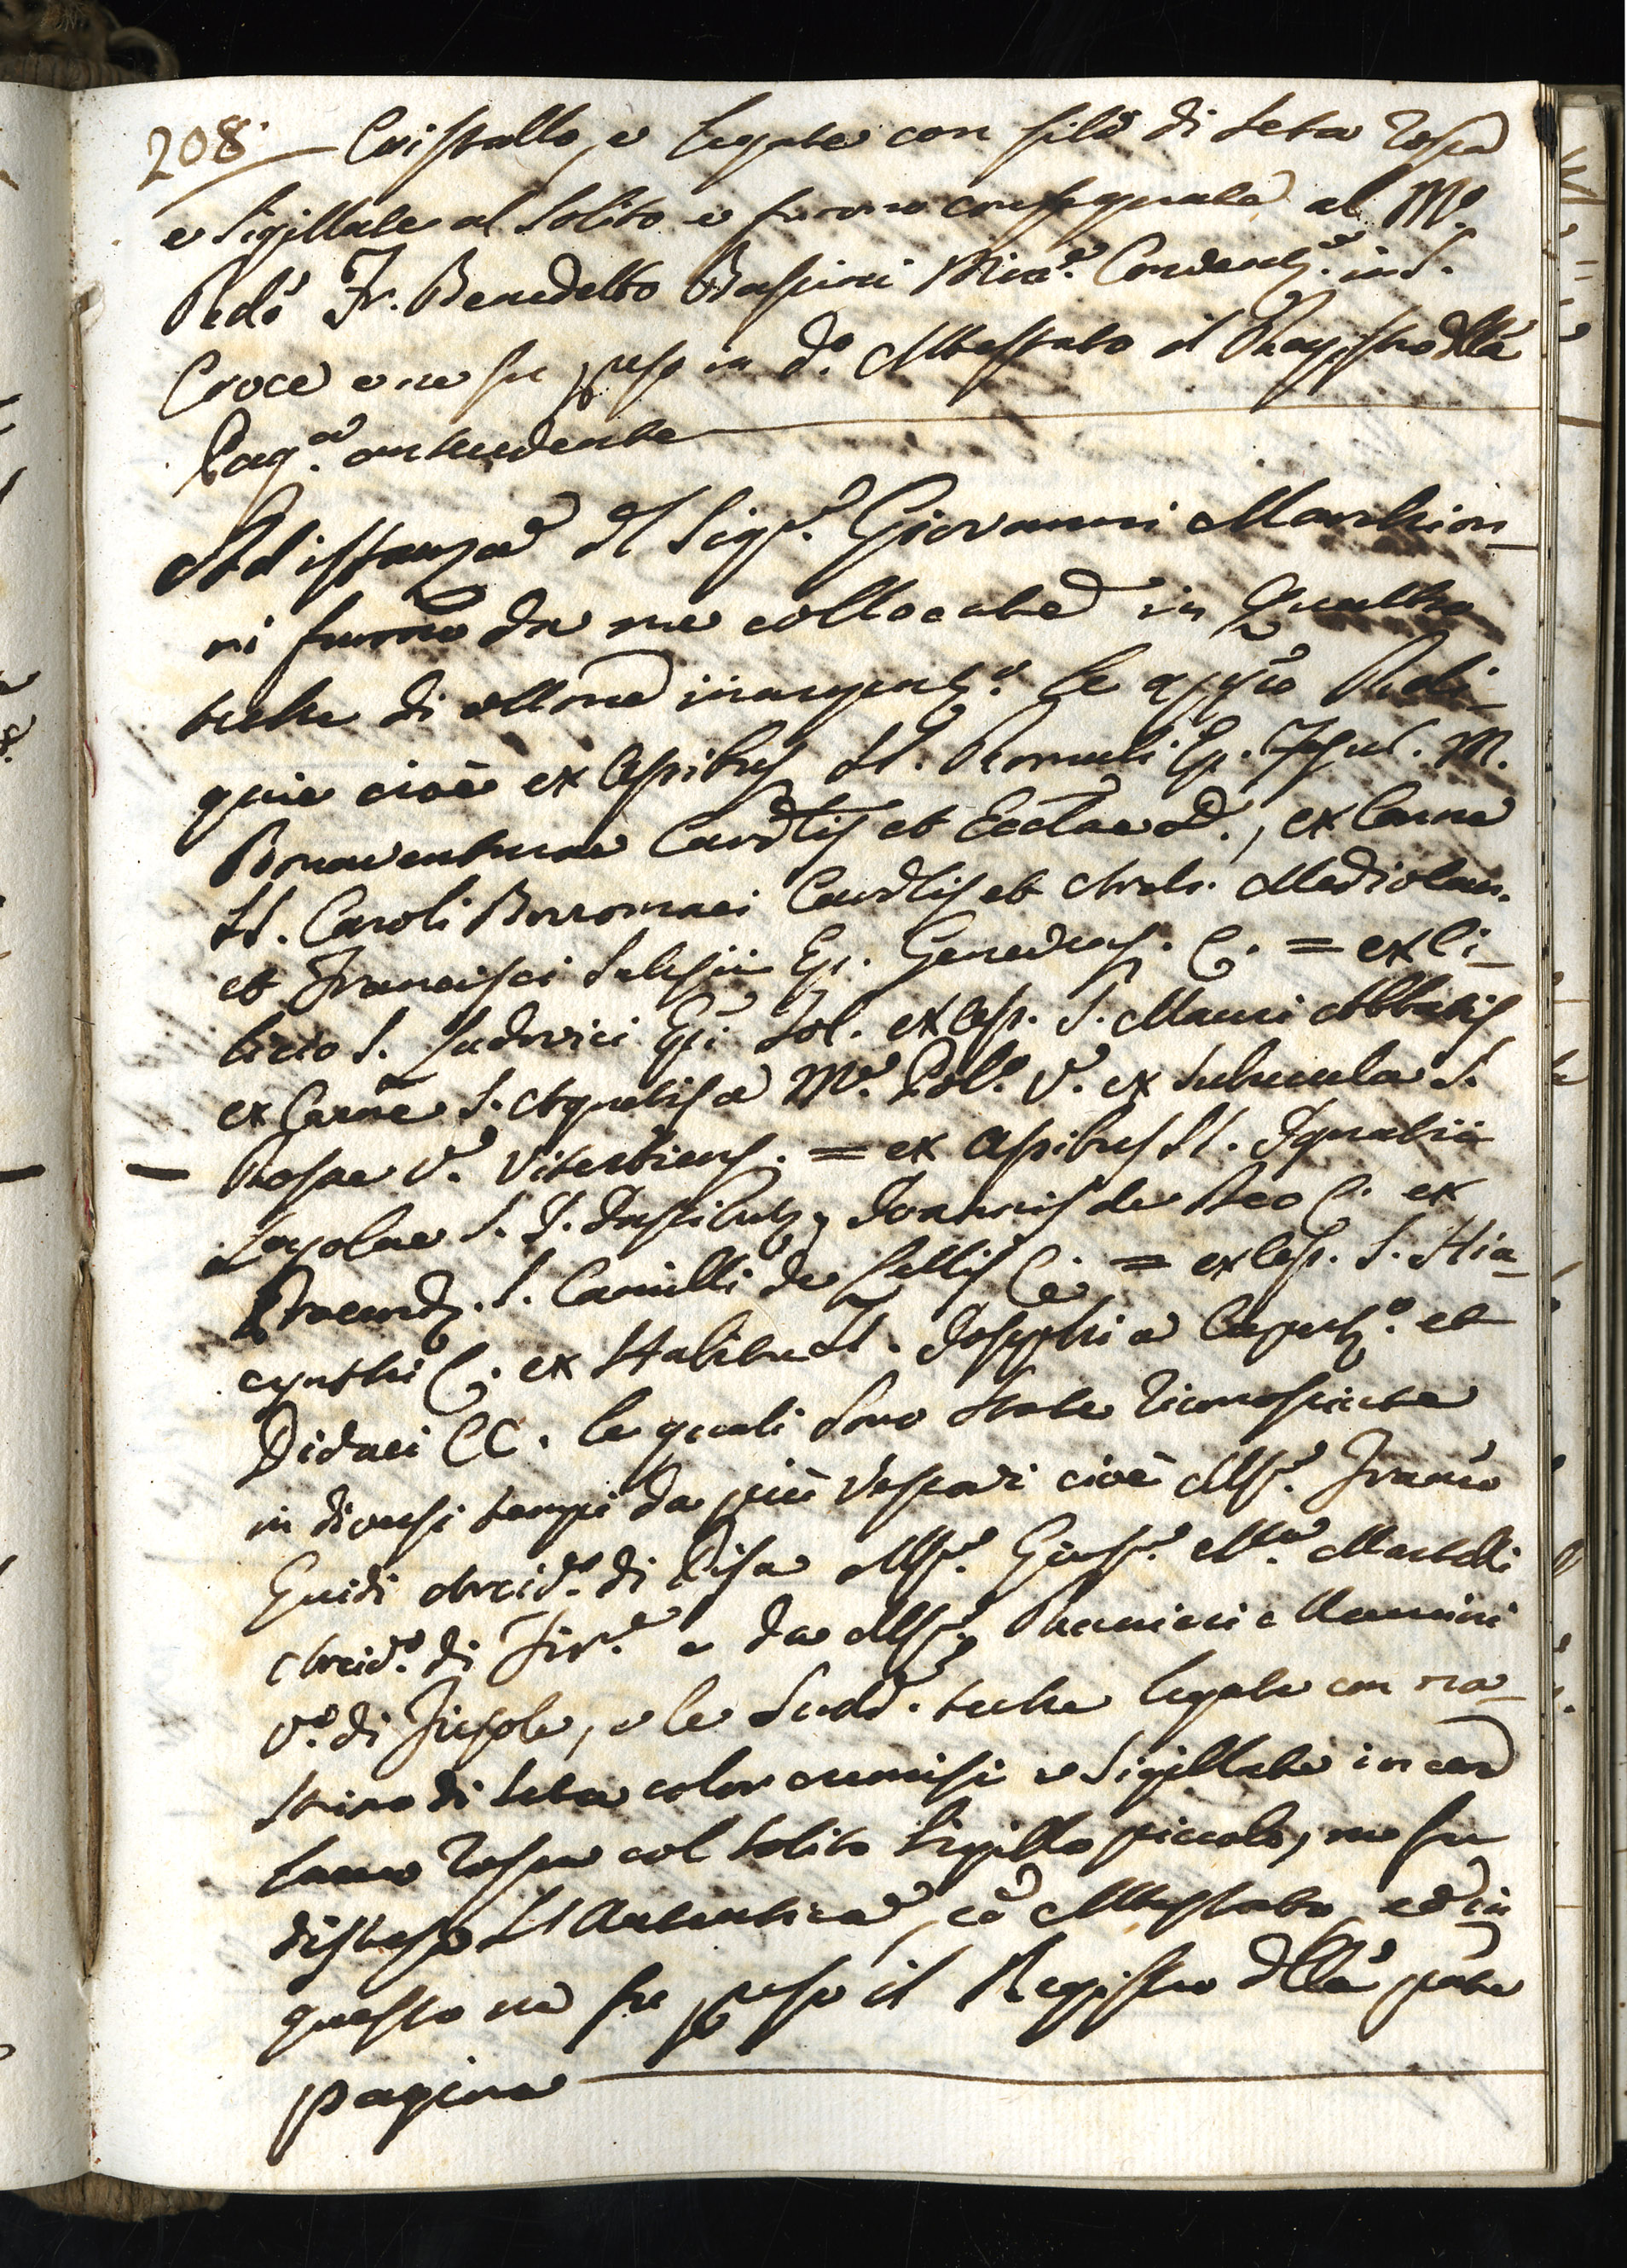 208. Cristallo, e legate con filo di seta rossa
e sigillate al solito e furono consegnate al M.o
Pedé Fr. Benedetto Min.e Convent.e in S.
Croce e ne fu preso in d.o Attestato il Registro d̃lla
Pag.a antecedente
Ad istanza d̃l Sig.r Giovanni Marchion-
ni furono da me collocate in Quattro
teche di ottone inargent.o le app̃ie Reli-
quie cioè ex Ossibus SS. Romuli Ep. Fesul. M.
Bonaventurae Card̃lis et Eccl̃ae D., ex Carne
SS. Caroli Borromaei Card̃lis et Archi. Mediolan.
et Francisci Salesii Ep. Genevens. C. = ex Ci-
licio S. Ludovici Ep. Tol. ex Oss. S. Mauri Abbatis
ex Carne S. Agnetis a M.e Pol.o V. ex Subucula S.
Rosae V. Viterbiens. = ex Ossibus SS. Ignatii
Loyolae S. I. Institut, Ioannis de Deo C. ex
Praecord. S. Camilli de Lellis C. = ex Oss. S. Hia-
cynthi C. ex Habitu SS. Josephi a Cupert.o et
Didaci CC. le quali sono state riconosciute
in diversi tempi da più Vescovi cioè Msr. Franc̃o
Guidi Arciv.o di Pisa Msr. Gius.e M.a Martelli
Arciv.o di Fir.e e da Msr. Ranieri Mancini
V.o di Fiesole, e le Sudd. teche legate con na-
strino di seta color cremisi e sigillate in cera
lacca rossa col solito sigillo piccolo, ne fu
distesa l'Autentica, cõ Attestato, ed in
questo ne fu preso il Registro d̃lla p̃nte
pagina